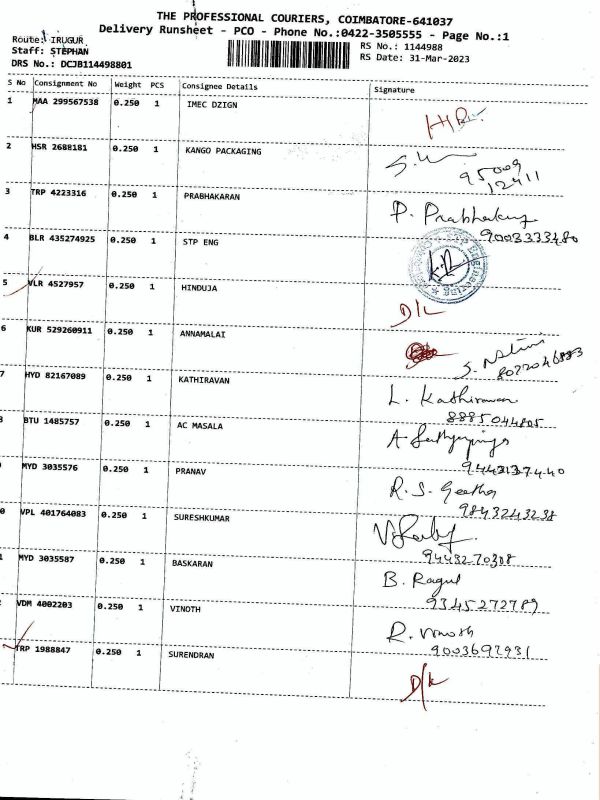 THE PROFESSIONAL COURIERS, COIMBATORE-641037
Delivery Runsheet - PCO - Phone No.:0422-3505555 - Page No.:1
Route: IRUGUR
Staff: STEPHAN
DRS No.: DCJB114498801
RS No.: 1144988
RS Date: 31-Mar-2023
S No Consignment No Weight PCS Consignee Details Signature
1 MAA 299567538 0.250 1 IMEC DZIGN
2 HSR 2688181 0.250 1 KANGO PACKAGING
95009
12411
3 TRP 4223316 0.250 1 PRABHAKARAN P. Prabhakaran
9003333480
4 BLR 435274925 0.250 1 STP ENG
5 VLR 4527957 0.250 1 HINDUJA D/L
6 KUR 529260911 0.250 1 ANNAMALAI
7 HYD 82167089 0.250 1 KATHIRAVAN L. Kathiravan
8885044805
BTU 1485757 0.250 1 AC MASALA
9443137440
MYD 3035576 0.250 1 PRANAV R. S. Geetha
9843243238
0 VPL 401764083 0.250 1 SURESHKUMAR
9443270308
MYD 3035587 0.250 1 BASKARAN B. Ragul
9345272789
VDM 4002203 0.250 1 VINOTH R. Vinoth
9003692931
TRP 1988847 0.250 1 SURENDRAN D/L